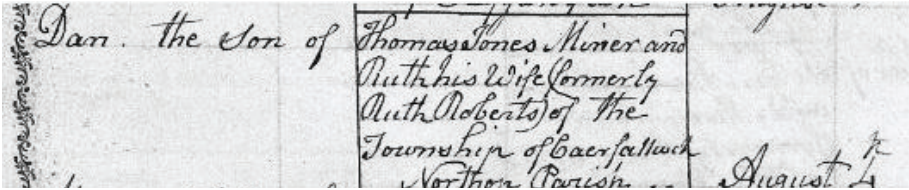 Dan. the Son of
Thomas Jones Miner and
Ruth his Wife (formerly
Ruth Roberts) of the
Township of Caerfallwch
Northop Parish
August 4